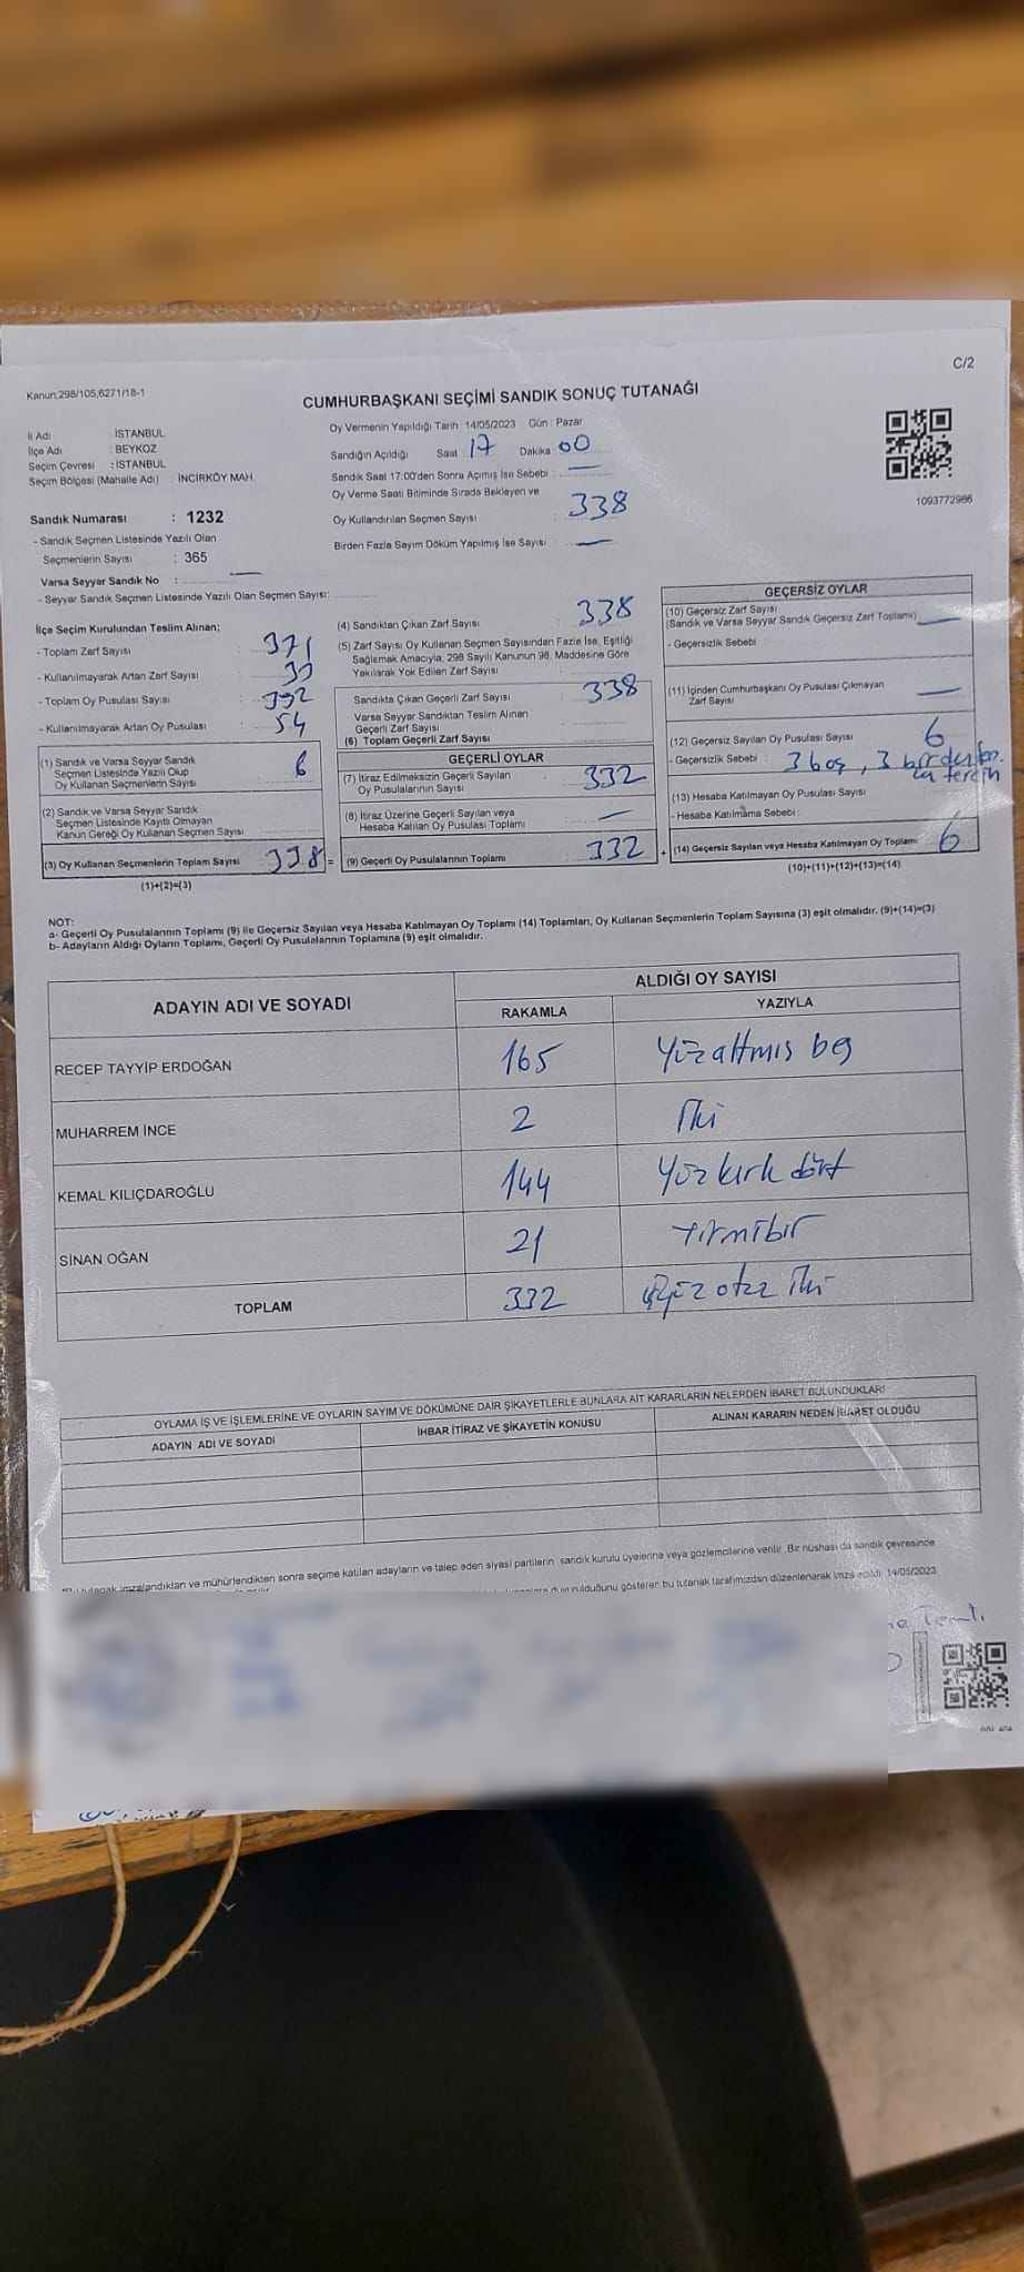 C/2
Kanun;298/105,6271/18-1
CUMHURBAŞKANI SEÇİMİ SANDIK SONUÇ TUTANAĞI
İl Adı : İSTANBUL
İlçe Adı : BEYKOZ
Seçim Çevresi : İSTANBUL
Seçim Bölgesi (Mahalle Adı) : İNCİRKÖY MAH.
Sandık Numarası : 1232
- Sandık Seçmen Listesinde Yazılı Olan
Seçmenlerin Sayısı : 365
Varsa Seyyar Sandık No :
- Seyyar Sandık Seçmen Listesinde Yazılı Olan Seçmen Sayısı:
Oy Vermenin Yapıldığı Tarih : 14/05/2023 Gün : Pazar
Sandığın Açıldığı Saat 17 Dakika 00
Sandık Saat 17:00'den Sonra Açılmış İse Sebebi :
Oy Verme Saati Bitiminde Sırada Bekleyen ve
Oy Kullandırılan Seçmen Sayısı : 338
Birden Fazla Sayım Döküm Yapılmış İse Sayısı :
1093772986
İlçe Seçim Kurulundan Teslim Alınan;
- Toplam Zarf Sayısı : 371
- Kullanılmayarak Artan Zarf Sayısı : 33
- Toplam Oy Pusulası Sayısı : 392
- Kullanılmayarak Artan Oy Pusulası : 54
(1) Sandık ve Varsa Seyyar Sandık
Seçmen Listesinde Yazılı Olup
Oy Kullanan Seçmenlerin Sayısı 6
(2) Sandık ve Varsa Seyyar Sandık
Seçmen Listesinde Kayıtlı Olmayan
Kanun Gereği Oy Kullanan Seçmen Sayısı
(3) Oy Kullanan Seçmenlerin Toplam Sayısı 338 =
(1)+(2)=(3)
(4) Sandıktan Çıkan Zarf Sayısı : 338
(5) Zarf Sayısı Oy Kullanan Seçmen Sayısından Fazla İse, Eşitliği
Sağlamak Amacıyla, 298 Sayılı Kanunun 98. Maddesine Göre
Yakılarak Yok Edilen Zarf Sayısı :
Sandıkta Çıkan Geçerli Zarf Sayısı : 338
Varsa Seyyar Sandıktan Teslim Alınan
Geçerli Zarf Sayısı
(6) Toplam Geçerli Zarf Sayısı
GEÇERLİ OYLAR
(7) İtiraz Edilmeksizin Geçerli Sayılan
Oy Pusulalarının Sayısı : 332
(8) İtiraz Üzerine Geçerli Sayılan veya
Hesaba Katılan Oy Pusulası Toplamı
(9) Geçerli Oy Pusulalarının Toplamı : 332 +
GEÇERSİZ OYLAR
(10) Geçersiz Zarf Sayısı
(Sandık ve Varsa Seyyar Sandık Geçersiz Zarf Toplamı)
- Geçersizlik Sebebi :
(11) İçinden Cumhurbaşkanı Oy Pusulası Çıkmayan
Zarf Sayısı
(12) Geçersiz Sayılan Oy Pusulası Sayısı 6
- Geçersizlik Sebebi : 3 boş, 3 birden
tercih
(13) Hesaba Katılmayan Oy Pusulası Sayısı
- Hesaba Katılmama Sebebi :
(14) Geçersiz Sayılan veya Hesaba Katılmayan Oy Toplamı 6
(10)+(11)+(12)+(13)=(14)
NOT:
a- Geçerli Oy Pusulalarının Toplamı (9) ile Geçersiz Sayılan veya Hesaba Katılmayan Oy Toplamı (14) Toplamları, Oy Kullanan Seçmenlerin Toplam Sayısına (3) eşit olmalıdır. (9)+(14)=(3)
b- Adayların Aldığı Oyların Toplamı, Geçerli Oy Pusulalarının Toplamına (9) eşit olmalıdır.
ADAYIN ADI VE SOYADI ALDIĞI OY SAYISI
RAKAMLA YAZIYLA
RECEP TAYYİP ERDOĞAN 165 Yüzaltmış beş
MUHARREM İNCE 2 İki
KEMAL KILIÇDAROĞLU 144 Yüz kırk dört
SİNAN OĞAN 21 Yirmibir
TOPLAM 332 Üçyüz otuz iki
OYLAMA İŞ VE İŞLEMLERİNE VE OYLARIN SAYIM VE DÖKÜMÜNE DAİR ŞİKAYETLERLE BUNLARA AİT KARARLARIN NELERDEN İBARET BULUNDUKLARI
ADAYIN ADI VE SOYADI İHBAR İTİRAZ VE ŞİKAYETİN KONUSU ALINAN KARARIN NEDEN İBARET OLDUĞU
tutanak imzalandıktan ve mühürlendikten sonra seçime katılan adayların ve talep eden siyasi partilerin sandık kurulu üyelerine veya gözlemcilerine verilir. Bir nüshası da sandık çevresinde
olduğunu gösteren bu tutanak tarafımızdan düzenlenerek imza edildi. 14/05/2023